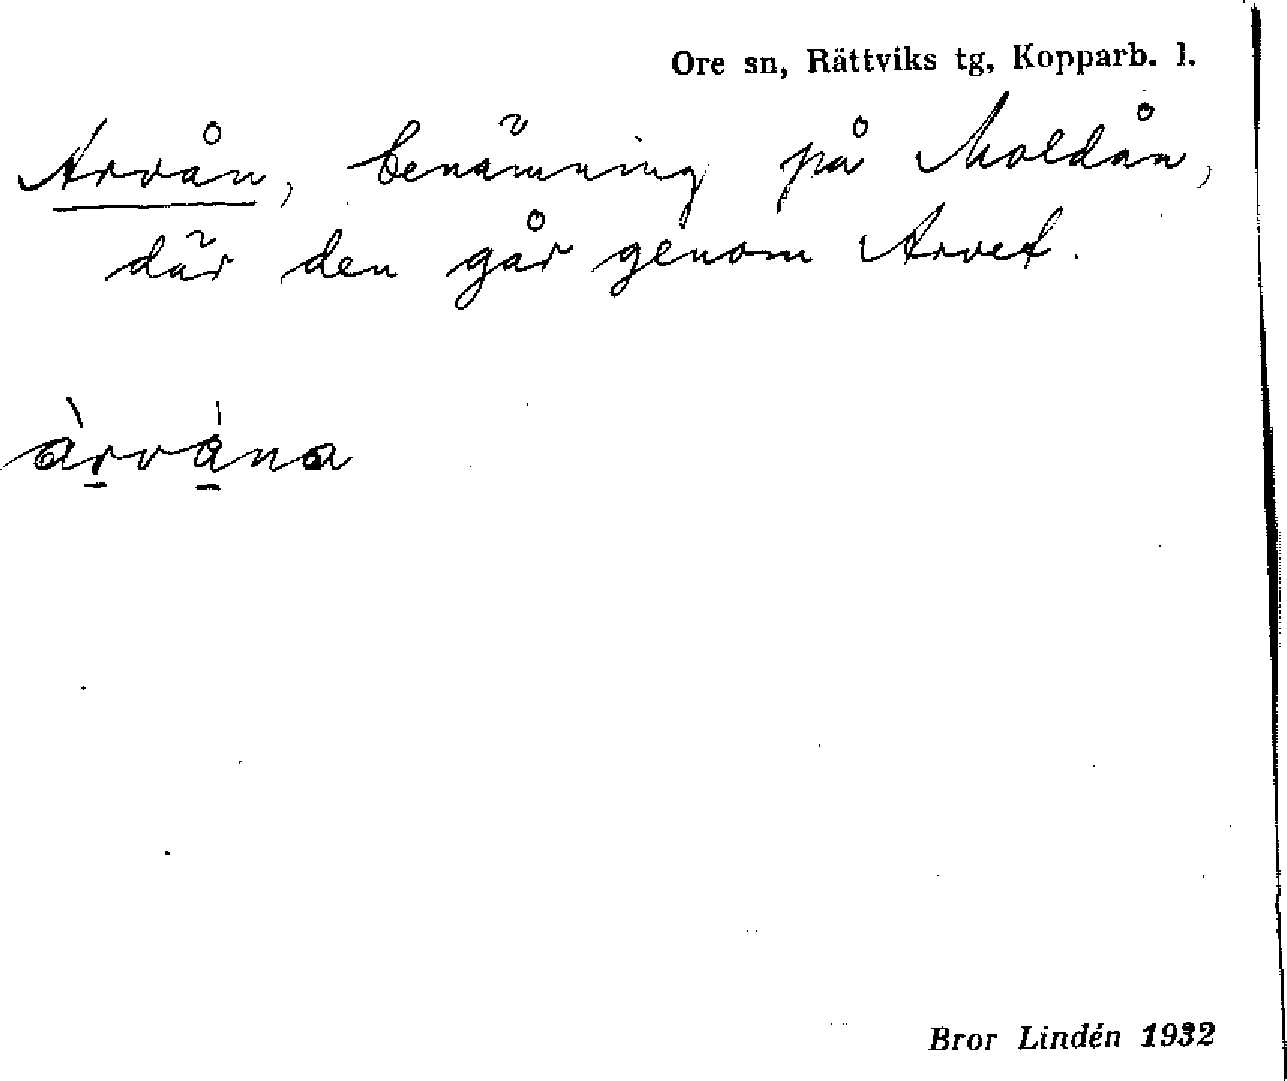 Ore sn, Rättviks tg, Kopparb. l.
Arvån, benämning på Moldån,
där den går genom Arvet.
àrvána
Bror Lindén 1932